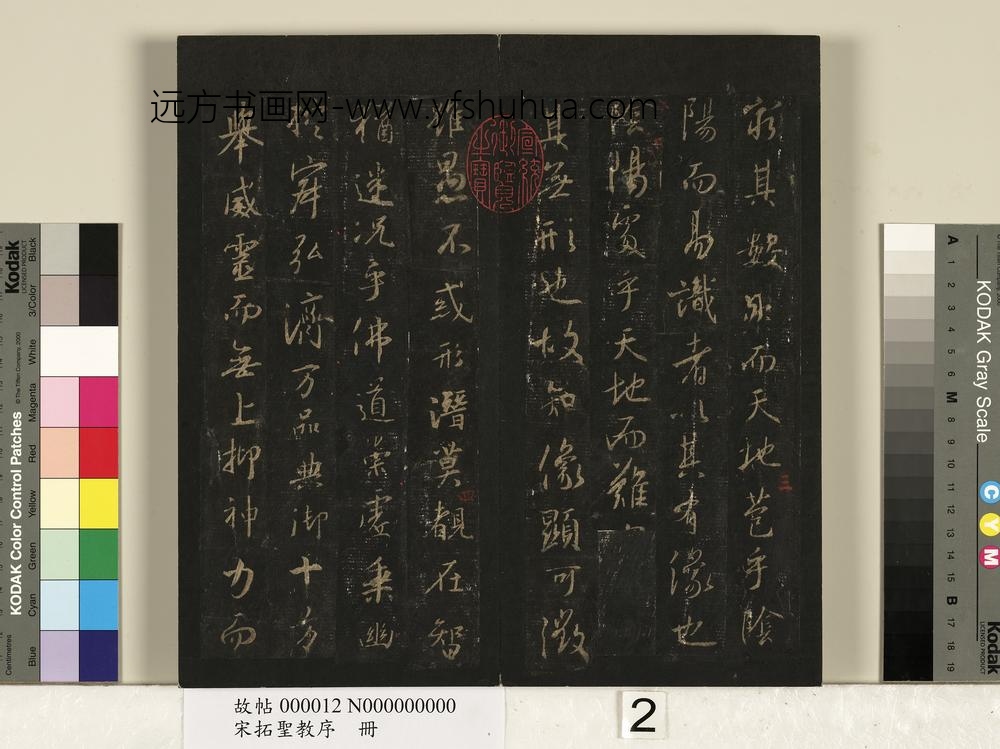 远方书画网-www.yfshuhua.com
窮其數然而天地苞乎陰
陽而易識者以其有像也
陰陽處乎天地而難
其無形也故知像顯可徵
雖愚不惑形潛莫覩在智
猶迷况乎佛道崇虛乘幽
控寂弘濟万品典御十方
舉威靈而無上抑神力而
三
四
宣統御覽之寶
故帖 000012 N000000000
宋拓聖教序 冊
2
Kodak
LICENSED PRODUCT
Black
3/Color
White
Magenta
Red
Yellow
Green
Cyan
Blue
© The Tiffen Company, 2000
KODAK Color Control Patches
Centimetres
KODAK Gray Scale
A 1 2 3 4 5 6 M 8 9 10 11 12 13 14 15 B 17 18 19
C
Y
M
Kodak
LICENSED PRODUCT